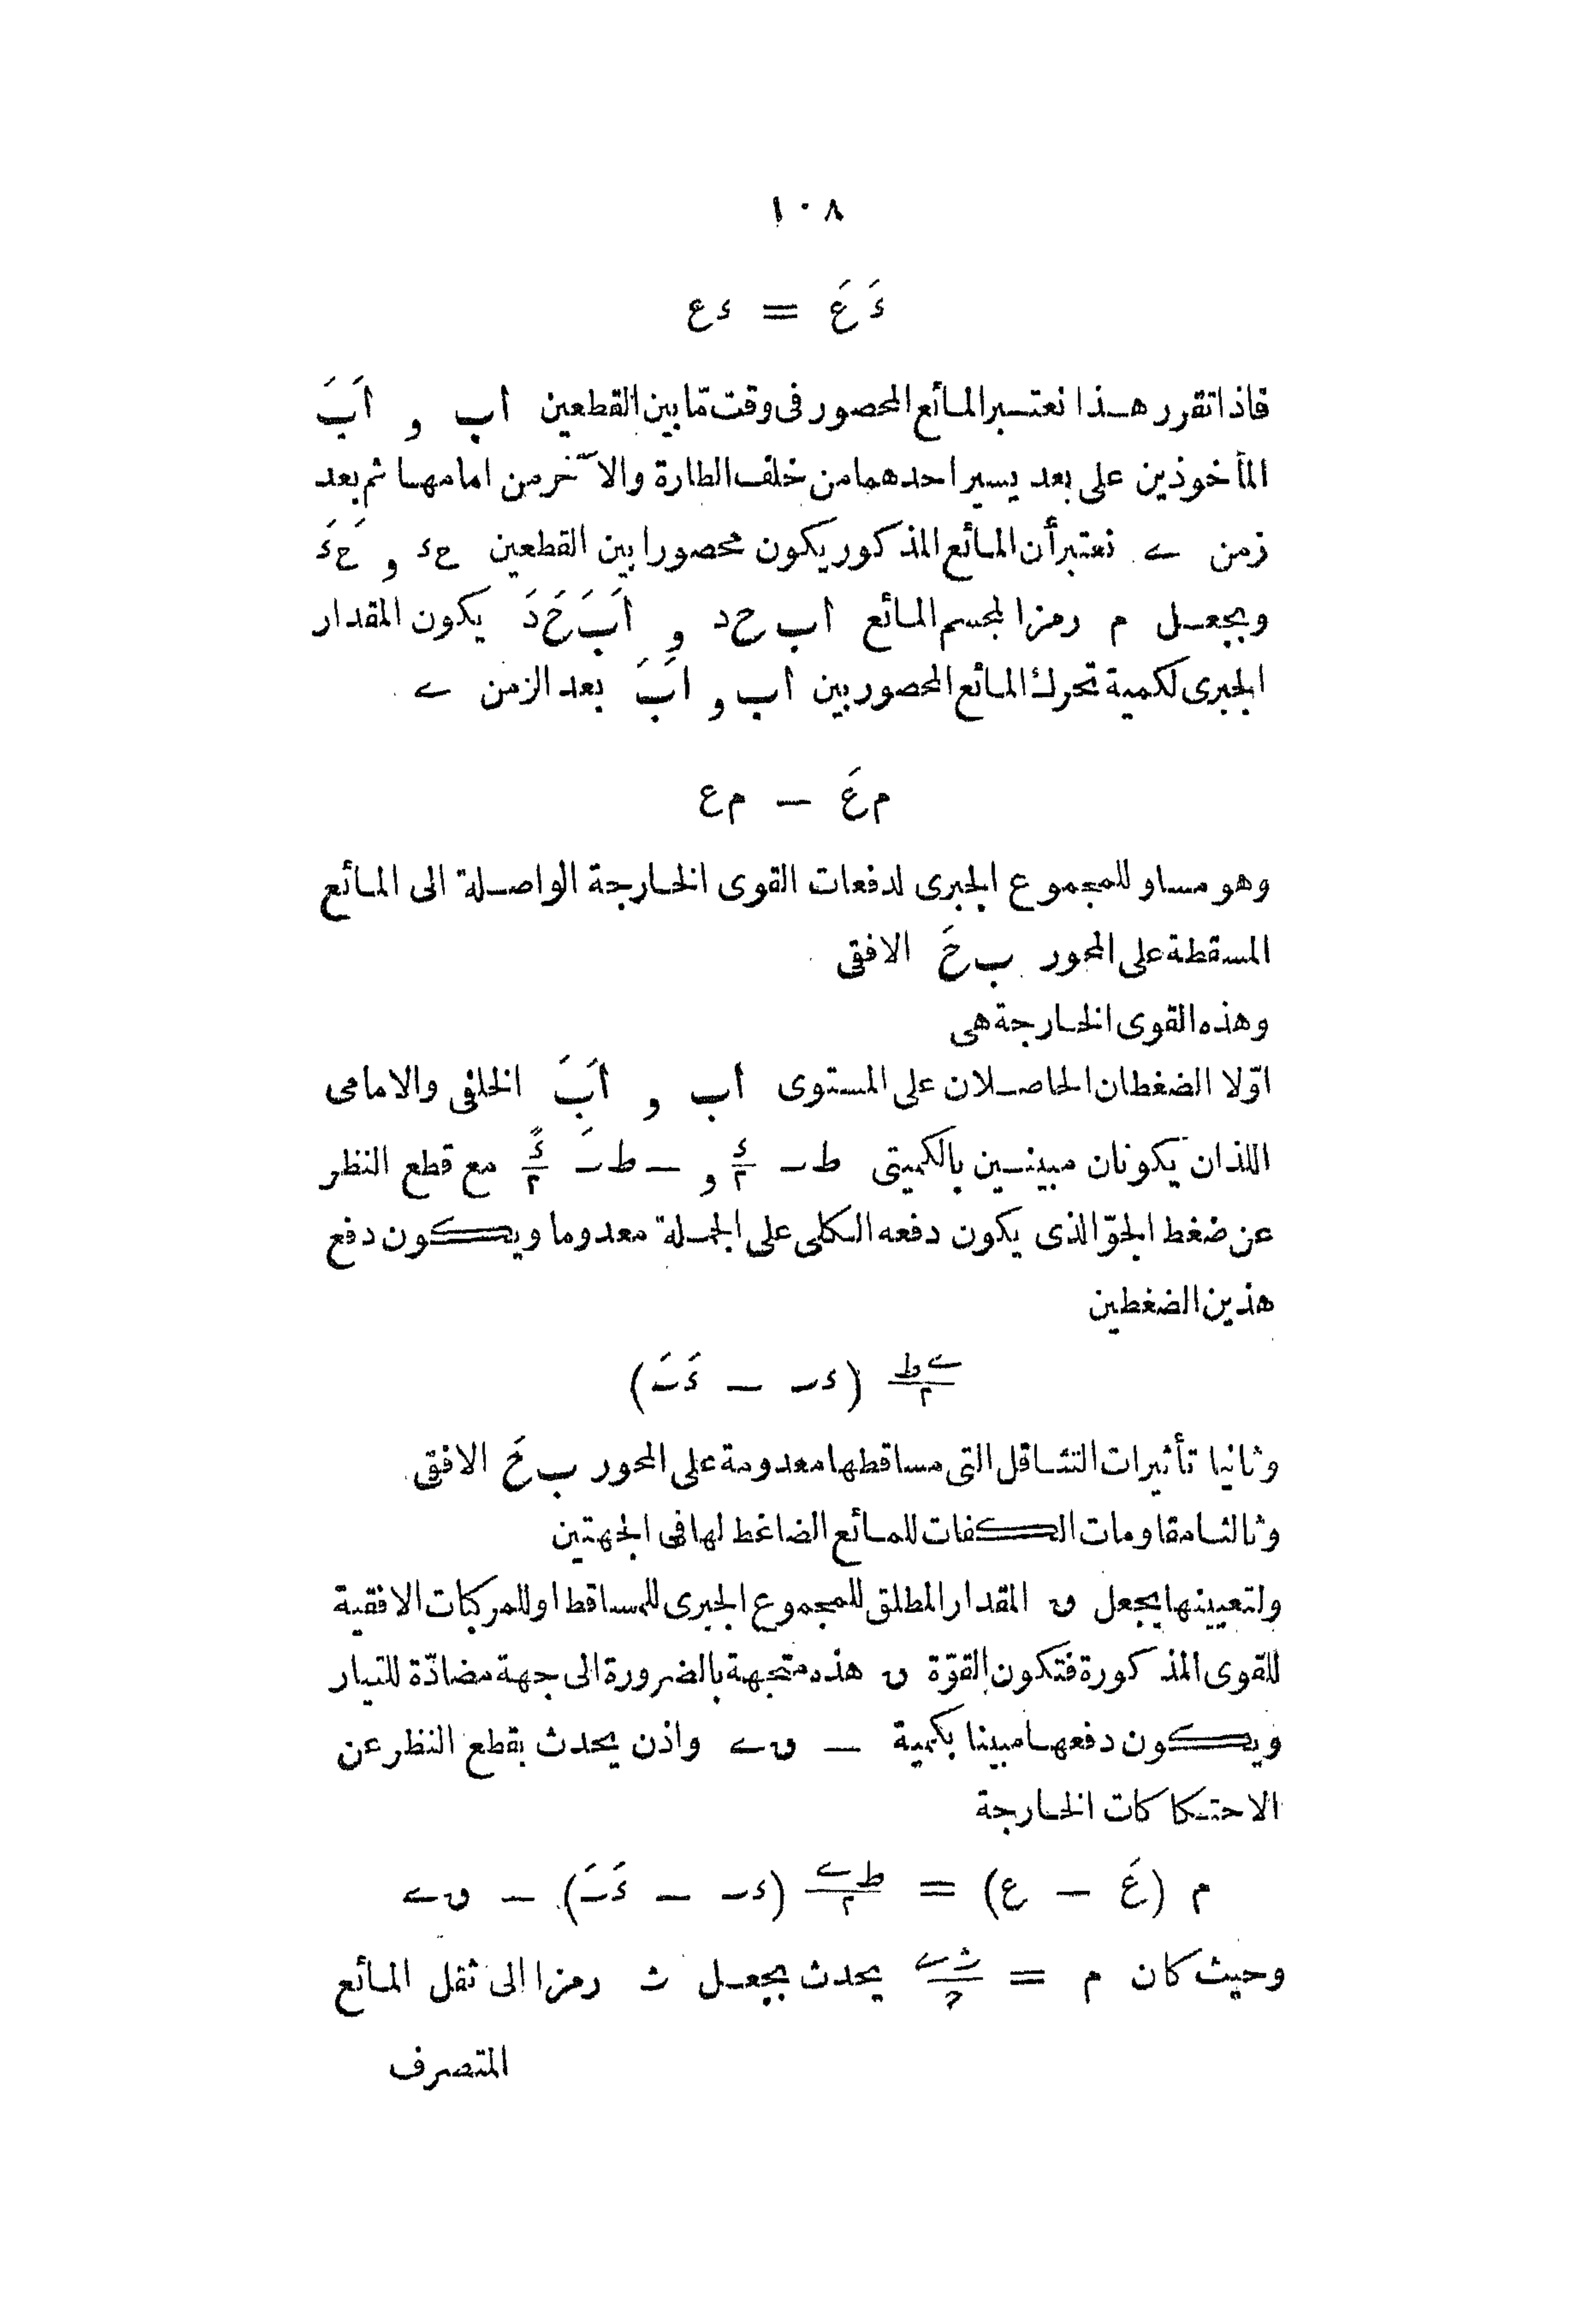 ١٠٨
ءَ عَ = ء ع
فاذا تقرر هذا نعتبر المائع المحصور فى وقت مّا بين القطعين اب و اَبَ
المأخوذين على بعد يسير احدهما من خلف الطارة والآخر من امامها ثم بعد
زمن ے نعتبر أن المائع المذكور يكون محصورا بين القطعين حء و حَءَ
وبجعل م رمزا لمجسم المائع اب حد و اَبَ حَدَ يكون المقدار
الجبرى لكمية تحرك المائع المحصور بين اب و اَبَ بعد الزمن ے
م عَ — م ع
وهو مساو للمجموع الجبرى لدفعات القوى الخارجة الواصلة الى المائع
المسقطة على المحور ب حَ الافقى
وهذه القوى الخارجة هى
اوّلا الضغطان الحاصلان على المستوى اب و اَبَ الخلفى والامامى
اللذان يكونان مبينين بالكميتى ط ٮ ء/٢ و — ط ٮَ ءً/٢ مع قطع النظر
عن ضغط الجوّ الذى يكون دفعه الكلى على الجملة معدوما ويكون دفع
هذين الضغطين
ے ط/٢ (ء ٮ — ءَ ٮَ)
وثانيا تأثيرات التثاقل التى مساقطها معدومة على المحور ب حَ الافقى
وثالثا مقاومات الكفات للمائع الضاغط لها فى الجهتين
ولتعيينها بجعل ں المقدار المطلق للمجموع الجبرى للمساقط او للمركبات الافقية
للقوى المذكورة فتكون القوّة ں هذه متجهة بالضرورة الى جهة مضادّة للتيار
ويكون دفعها مبينا بكمية — ں ے واذن يحدث بقطع النظر عن
الاحتكاكات الخارجة
م (عَ — ع) = ط ے/٢ (ء ٮ — ءَ ٮَ) — ں ے
وحيث كان م = ث ے/ح يحدث بجعل ث رمزا الى ثقل المائع
المتصرف